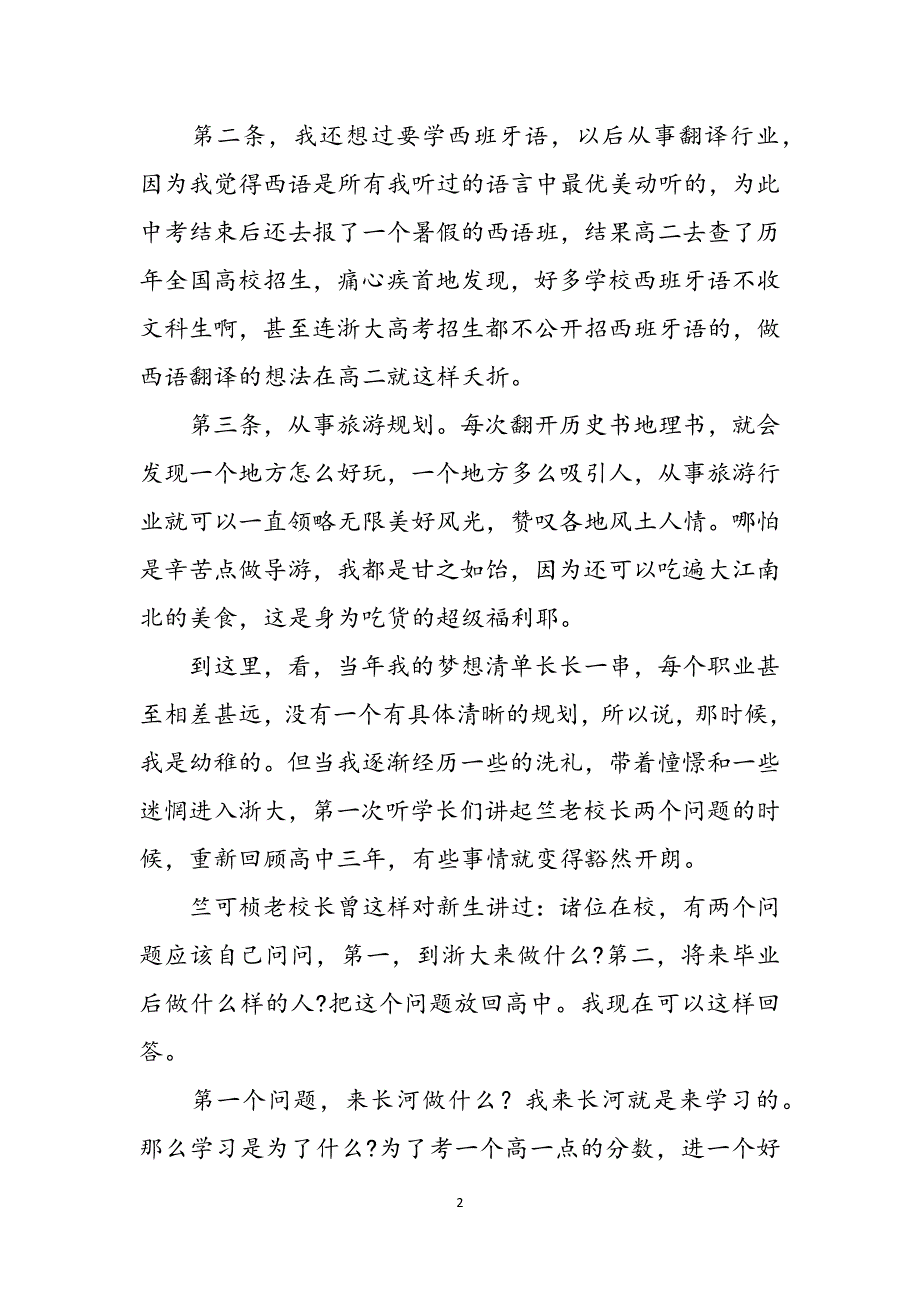 第二条，我还想过要学西班牙语，以后从事翻译行业，
因为我觉得西语是所有我听过的语言中最优美动听的，为此
中考结束后还去报了一个暑假的西语班，结果高二去查了历
年全国高校招生，痛心疾首地发现，好多学校西班牙语不收
文科生啊，甚至连浙大高考招生都不公开招西班牙语的，做
西语翻译的想法在高二就这样夭折。
第三条，从事旅游规划。每次翻开历史书地理书，就会
发现一个地方怎么好玩，一个地方多么吸引人，从事旅游行
业就可以一直领略无限美好风光，赞叹各地风土人情。哪怕
是辛苦点做导游，我都是甘之如饴，因为还可以吃遍大江南
北的美食，这是身为吃货的超级福利耶。
到这里，看，当年我的梦想清单长长一串，每个职业甚
至相差甚远，没有一个有具体清晰的规划，所以说，那时候，
我是幼稚的。但当我逐渐经历一些的洗礼，带着憧憬和一些
迷惘进入浙大，第一次听学长们讲起竺老校长两个问题的时
候，重新回顾高中三年，有些事情就变得豁然开朗。
竺可桢老校长曾这样对新生讲过：诸位在校，有两个问
题应该自己问问，第一，到浙大来做什么?第二，将来毕业
后做什么样的人?把这个问题放回高中。我现在可以这样回
答。
第一个问题，来长河做什么？我来长河就是来学习的。
那么学习是为了什么?为了考一个高一点的分数，进一个好
2